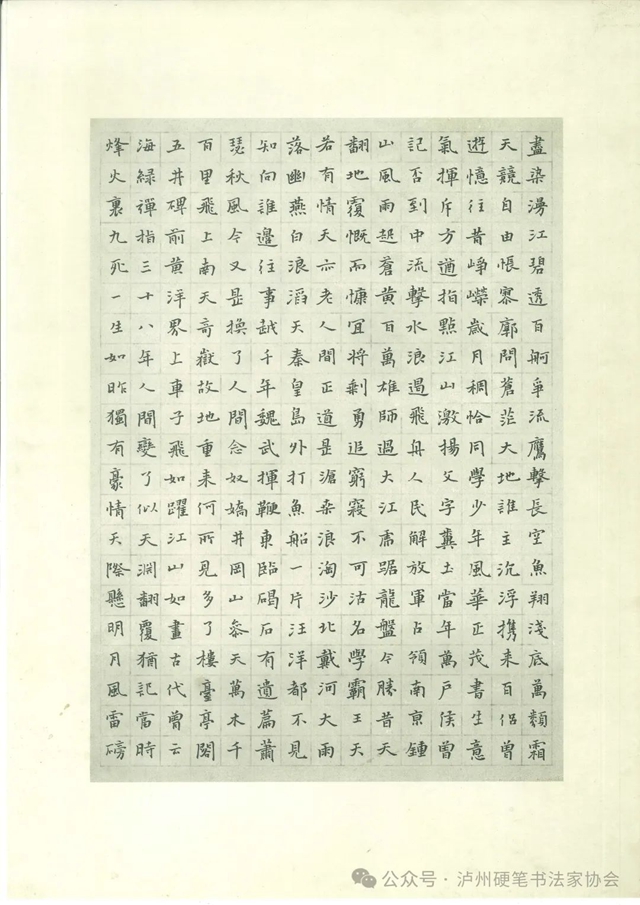 盡染漫江碧透百舸爭流鷹擊長空魚翔淺底萬類霜
天競自由悵寥廓問蒼茫大地誰主沉浮携来百侣曾
遊憶往昔崢嶸歲月稠恰同學少年風華正茂書生意
氣揮斥方遒指點江山激揚文字糞土當年萬户侯曾
記否到中流擊水浪遏飛舟人民解放軍占領南京鍾
山風雨起蒼黄百萬雄師過大江虎踞龍盤今勝昔天
翻地覆慨而慷宜將剩勇追窮寇不可沽名學霸王天
若有情天亦老人間正道是滄桑浪淘沙北戴河大雨
落幽燕白浪滔天秦皇島外打魚船一片汪洋都不見
知向誰邊往事越千年魏武揮鞭東臨碣石有遺篇蕭
瑟秋風今又是換了人間念奴嬌井岡山參天萬木千
百里飛上南天奇嶽故地重来何所見多了樓臺亭閣
五井碑前黄洋界上車子飛如躍江山如畫古代曾云
海緑禪指三十八年人間變了似天淵翻覆猶記當時
烽火裏九死一生如昨獨有豪情天際懸明月風雷磅
公众号·泸州硬笔书法家协会